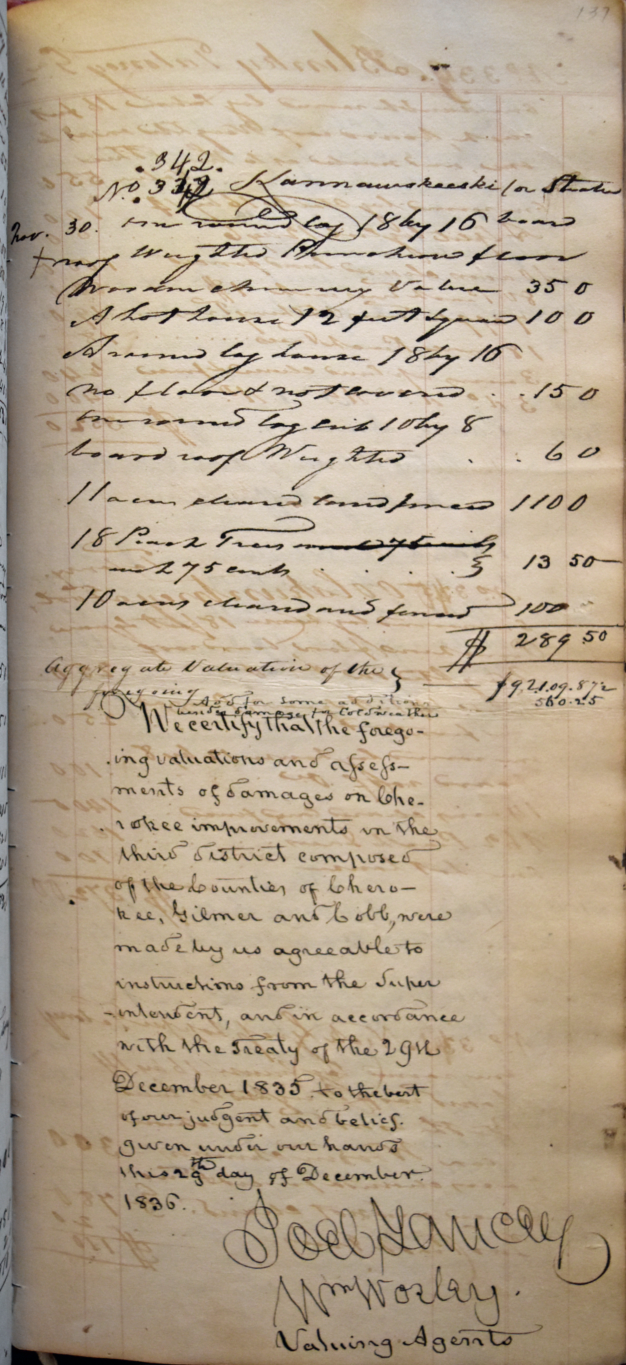 137
.342.
No. 339 Kannawskeeski or Skater
Nov. 30. One round log 18 by 16 board
roof Weighted Puncheon floor
Wooden chimney Value 35 0
A hot house 12 feet square 10 0
A round log house 18 by 16
no floor & not covered . . 15 0
One round log crib 10 by 8
board roof Weighted . . 6 0
11 acres cleared land fenced 110 0
18 Peach Trees worth 75 cents
worth 75 cents . . . . } 13 50
10 acres cleared and fenced 100
$ 289 50
Aggregate Valuation of the }
foregoing — $92109.87½
And for some addition
560.25
We certify that the forego-
ing valuations and assess-
ments of damages on Che-
rokee improvements in the
third district composed
of the Counties of Chero-
kee, Gilmer and Cobb, were
made by us agreeable to
instructions from the Super
-intendent, and in accordance
with the Treaty of the 29th
December 1835. to the best
of our judgent and belief.
given under our hands
this 29th day of December.
1836.
Joel Yancey
Wm Worley.
Valuing Agents